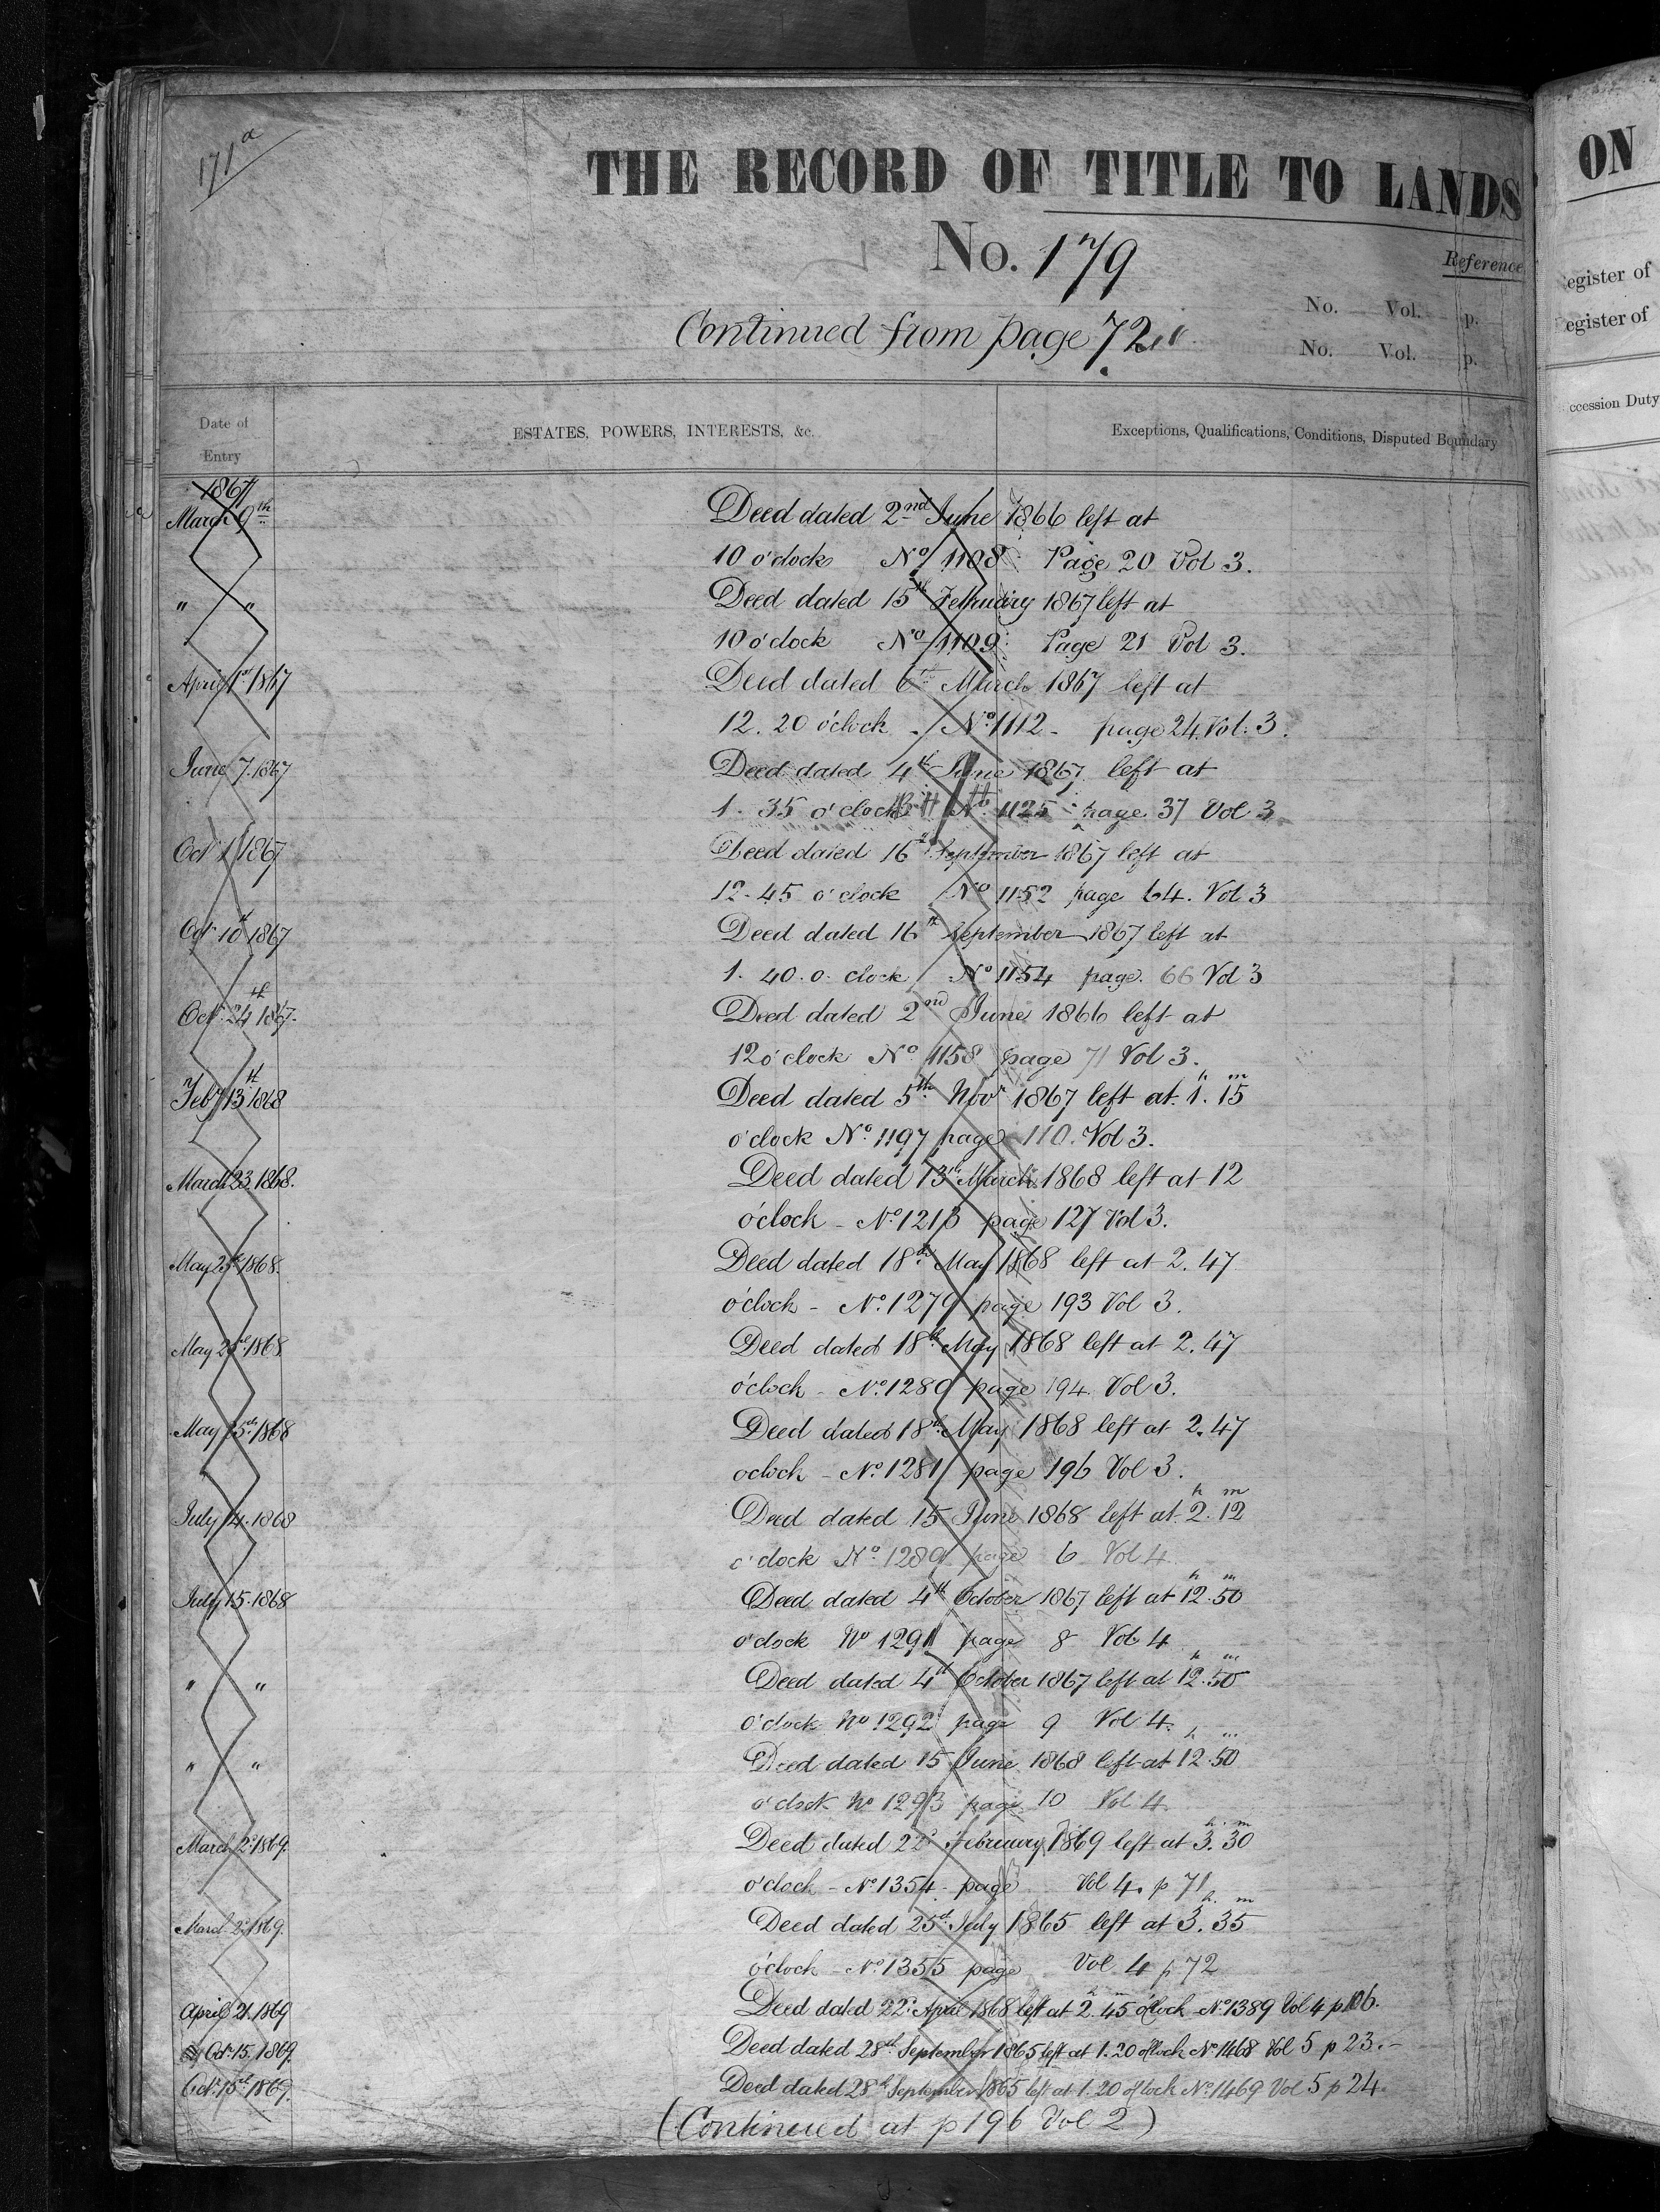 171a
THE RECORD OF TITLE TO LANDS
No. 179
Reference
Continued from page 72
No. Vol. p.
No. Vol. p.
Date of Entry
ESTATES, POWERS, INTERESTS, &c.
Exceptions, Qualifications, Conditions, Disputed Boundary
1867
March 9th Deed dated 2nd June 1866 left at
10 o'clock No 1108 Page 20 Vol 3.
" " Deed dated 15th February 1867 left at
10 o'clock No 1109 Page 21 Vol 3.
April 1st 1867 Deed dated 6th March 1867 left at
12.20 o'clock - No 1112 - page 24 Vol. 3.
June 7. 1867 Deed dated 4th June 1867 left at
1. 35 o'clock No. 1125 page 37 Vol 3
Oct 1 1867 Deed dated 16th September 1867 left at
12-45 o'clock No 1152 page 64. Vol 3
Oct 10th 1867 Deed dated 16th September 1867 left at
1. 40. o. clock No 1154 page. 66 Vol 3
Oct. 24th 1867. Deed dated 2nd June 1866 left at
12 o'clock No. 1158 page 71 Vol 3.
Feby 13th 1868 Deed dated 5th Novr 1867 left at 1.h 15m
o'clock No. 1197 page 110. Vol 3.
March 23. 1868. Deed dated 13th March 1868 left at 12
o'clock - No. 1213 page 127 Vol 3.
May 25th 1868. Deed dated 18th May 1868 left at 2.47
o'clock - No. 1279 page 193 Vol 3.
May 25th 1868 Deed dated 18th May 1868 left at 2.47
o'clock - No. 1280 page 194 Vol 3.
May 25th 1868 Deed dated 18th May 1868 left at 2.47
oclock - No. 1281 page 196 Vol 3.
July 14. 1868 Deed dated 15 June 1868 left at 2.h 12m
o'clock No. 1289 page 6 Vol 4
July 15. 1868 Deed dated 4th October 1867 left at 12.h 50m
o'clock No 1291 page 8 Vol 4
" " Deed dated 4th October 1867 left at 12.h 50m
o'clock No 1292 page 9 Vol 4.
" " Deed dated 15 June 1868 left at 12.h 50m
o'clock No 1293 page 10 Vol 4
March 2d 1869. Deed dated 22d February 1869 left at 3.h 30m
o'clock - No. 1354 - page Vol 4. p 71
March 2d 1869. Deed dated 25d July 1865 left at 3.h 35m
o'clock - No. 1355 page Vol 4 p 72
April 21. 1869 Deed dated 22d April 1868 left at 2.h 45m o'clock - No. 1389 Vol 4 p 106.
Octr 15. 1869. Deed dated 28th September 1865 left at 1.20 o'clock No 1468 Vol 5 p 23. -
Oct. 15th 1869. Deed dated 28th September 1865 left at 1.20 o'clock No. 1469 Vol 5 p 24
(Continued at p 196 Vol 2)
ON
egister of
egister of
ccession Duty